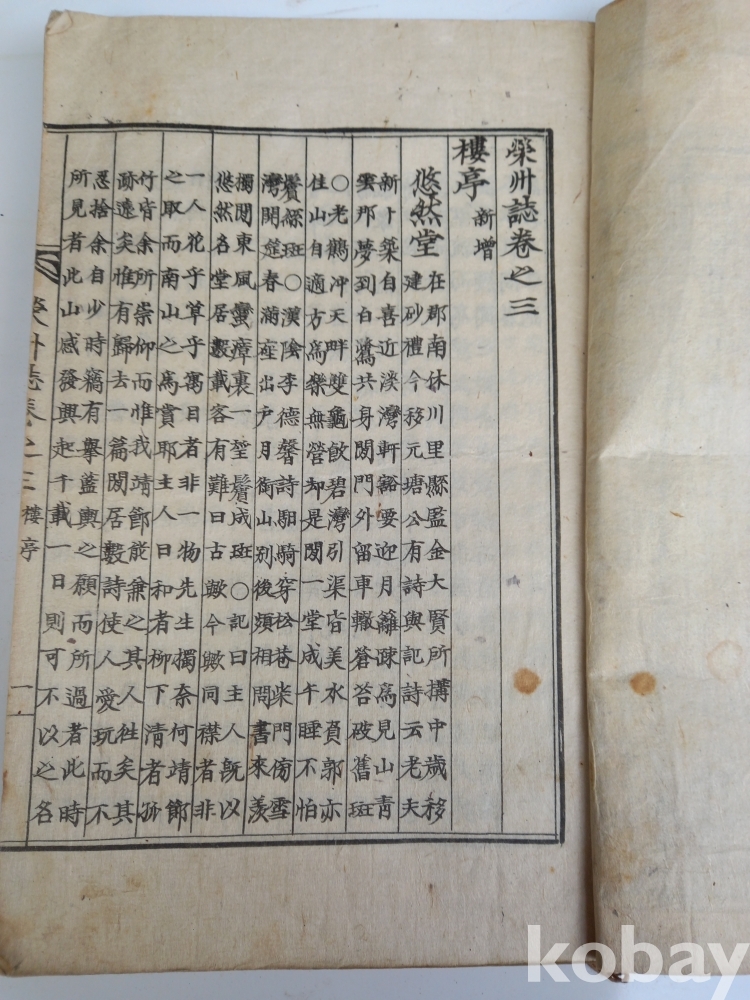 榮州誌卷之三
樓亭 新增
悠然堂 在郡南休川里縣監金大賢所搆中歲移
建砂禮今移元塘公有詩與記詩云老夫
新卜築自喜近淡灣軒豁要迎月籬疎爲見山靑
雲那夢到白鷺共身閒門外留車轍蒼苔破舊斑
○老鶴沖天畔雙龜飮碧灣引渠皆美水負郭亦
佳山自適方爲樂無營却是閒一堂成午睡不怕
鬢絲斑○漢陰李德馨詩馹騎穿松巷柴門傍雪
灣開筵春滿座出戶月銜山別後須相問書來羨
獨閒東風蠻瘴裏一鬢成斑○記曰主人旣以
悠然名堂居數載客有難曰古歟今歟同襟者非
一人花乎草乎寓目者非一物先生獨奈何靖節
之取而南山之爲賞耶主人曰和者柳下清者孤
竹皆余所崇仰而惟我靖節能兼之其人往矣其
跡遠矣惟有歸去一篇閒居數詩使人愛玩而不
忍捨余自少時竊有擧藍輿之願而所過者此時
所見者此山感發興起千載一日則可不以之名
榮州誌卷之三 樓亭 一
kobay